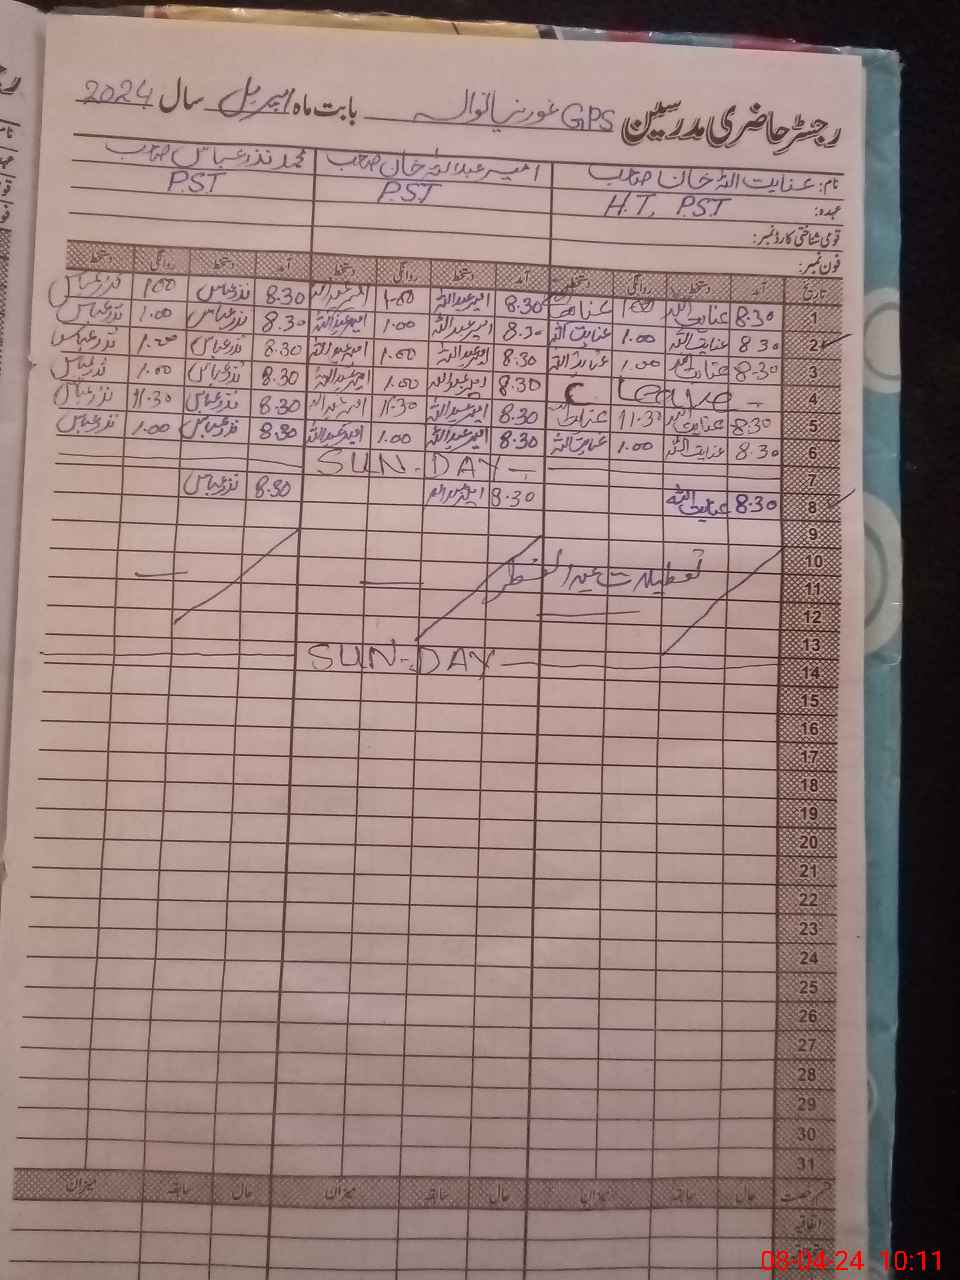 رجسٹر حاضری مدرسین GPS غورنیانوالہ بابت ماہ اپریل سال 2024
نام: عنایت اللہ خان صاحب امیر عبداللہ خان صاحب محمد نذر عباس صاحب
عہدہ: H.T, P.S.T P.S.T P.S.T
قومی شناختی کارڈ نمبر:
فون نمبر:
تاریخ آمد دستخط روانگی دستخط آمد دستخط روانگی دستخط آمد دستخط روانگی دستخط
1 8.30 عنایت اللہ 1.00 8.30 امیر عبداللہ 1.00 امیر عبداللہ 8.30 نذر عباس 1.00 نذر عباس
2 8.30 عنایت اللہ 1.00 عنایت اللہ 8.30 امیر عبداللہ 1.00 امیر عبداللہ 8.30 نذر عباس 1.00 نذر عباس
3 8.30 عنایت اللہ 1.00 عنایت اللہ 8.30 امیر عبداللہ 1.00 امیر عبداللہ 8.30 نذر عباس 1.00 نذر عباس
4 C Leave 8.30 امیر عبداللہ 1.00 امیر عبداللہ 8.30 نذر عباس 1.00 نذر عباس
5 8.30 عنایت اللہ 11.30 عنایت اللہ 8.30 امیر عبداللہ 11.30 امیر عبداللہ 8.30 نذر عباس 11.30 نذر عباس
6 8.30 عنایت اللہ 1.00 عنایت اللہ 8.30 امیر عبداللہ 1.00 امیر عبداللہ 8.30 نذر عباس 1.00 نذر عباس
7 SUN-DAY
8 8.30 عنایت اللہ 8.30 امیر عبداللہ 8.30 نذر عباس
9
10
11 تعطیلات عید الفطر
12
13
14 SUN-DAY
15
16
17
18
19
20
21
22
23
24
25
26
27
28
29
30
31
حال سابقہ میزان حال سابقہ میزان حال سابقہ میزان
اتفاقیہ
08-04-24 10:11